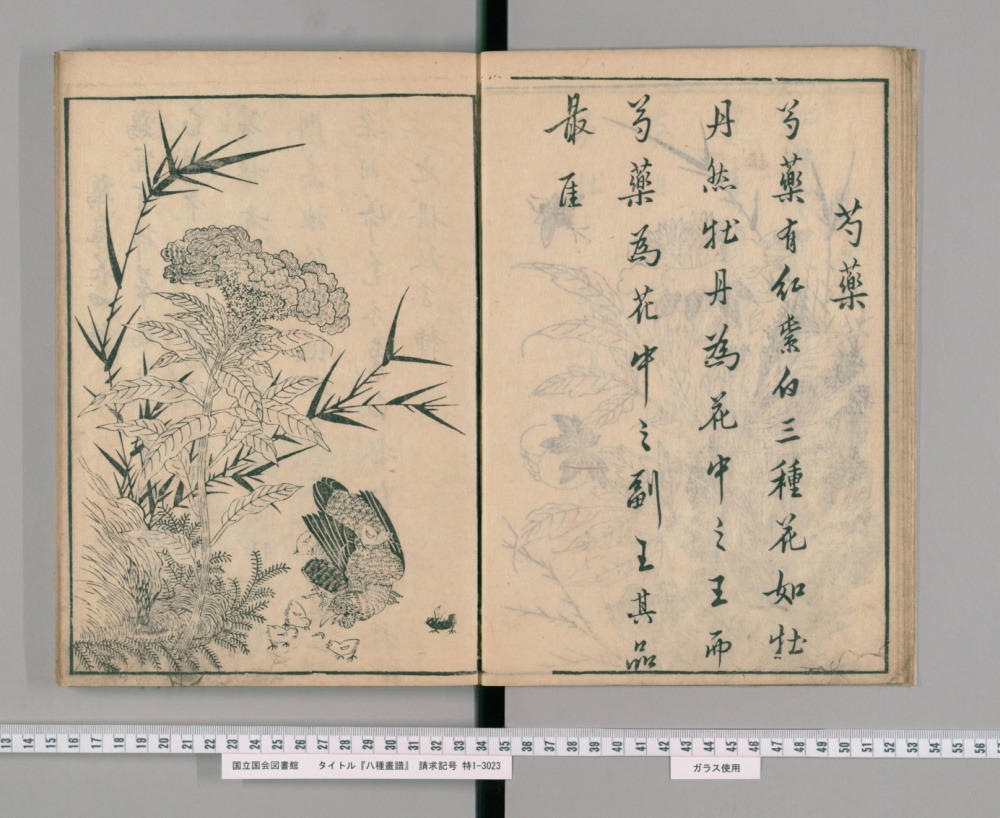 芍藥
芍藥有紅紫白三種花如牡
丹然牡丹為花中之王而
芍藥為花中之副王其品
最
13 14 15 16 17 18 19 20 21 22 23 24 25 26 27 28 29 30 31 32 33 34 35 36 37 38 39 40 41 42 43 44 45 46 47 48 49 50 51 52 53 54 55 56
国立国会図書館 タイトル『八種畫譜』 請求記号 特1-3023
ガラス使用